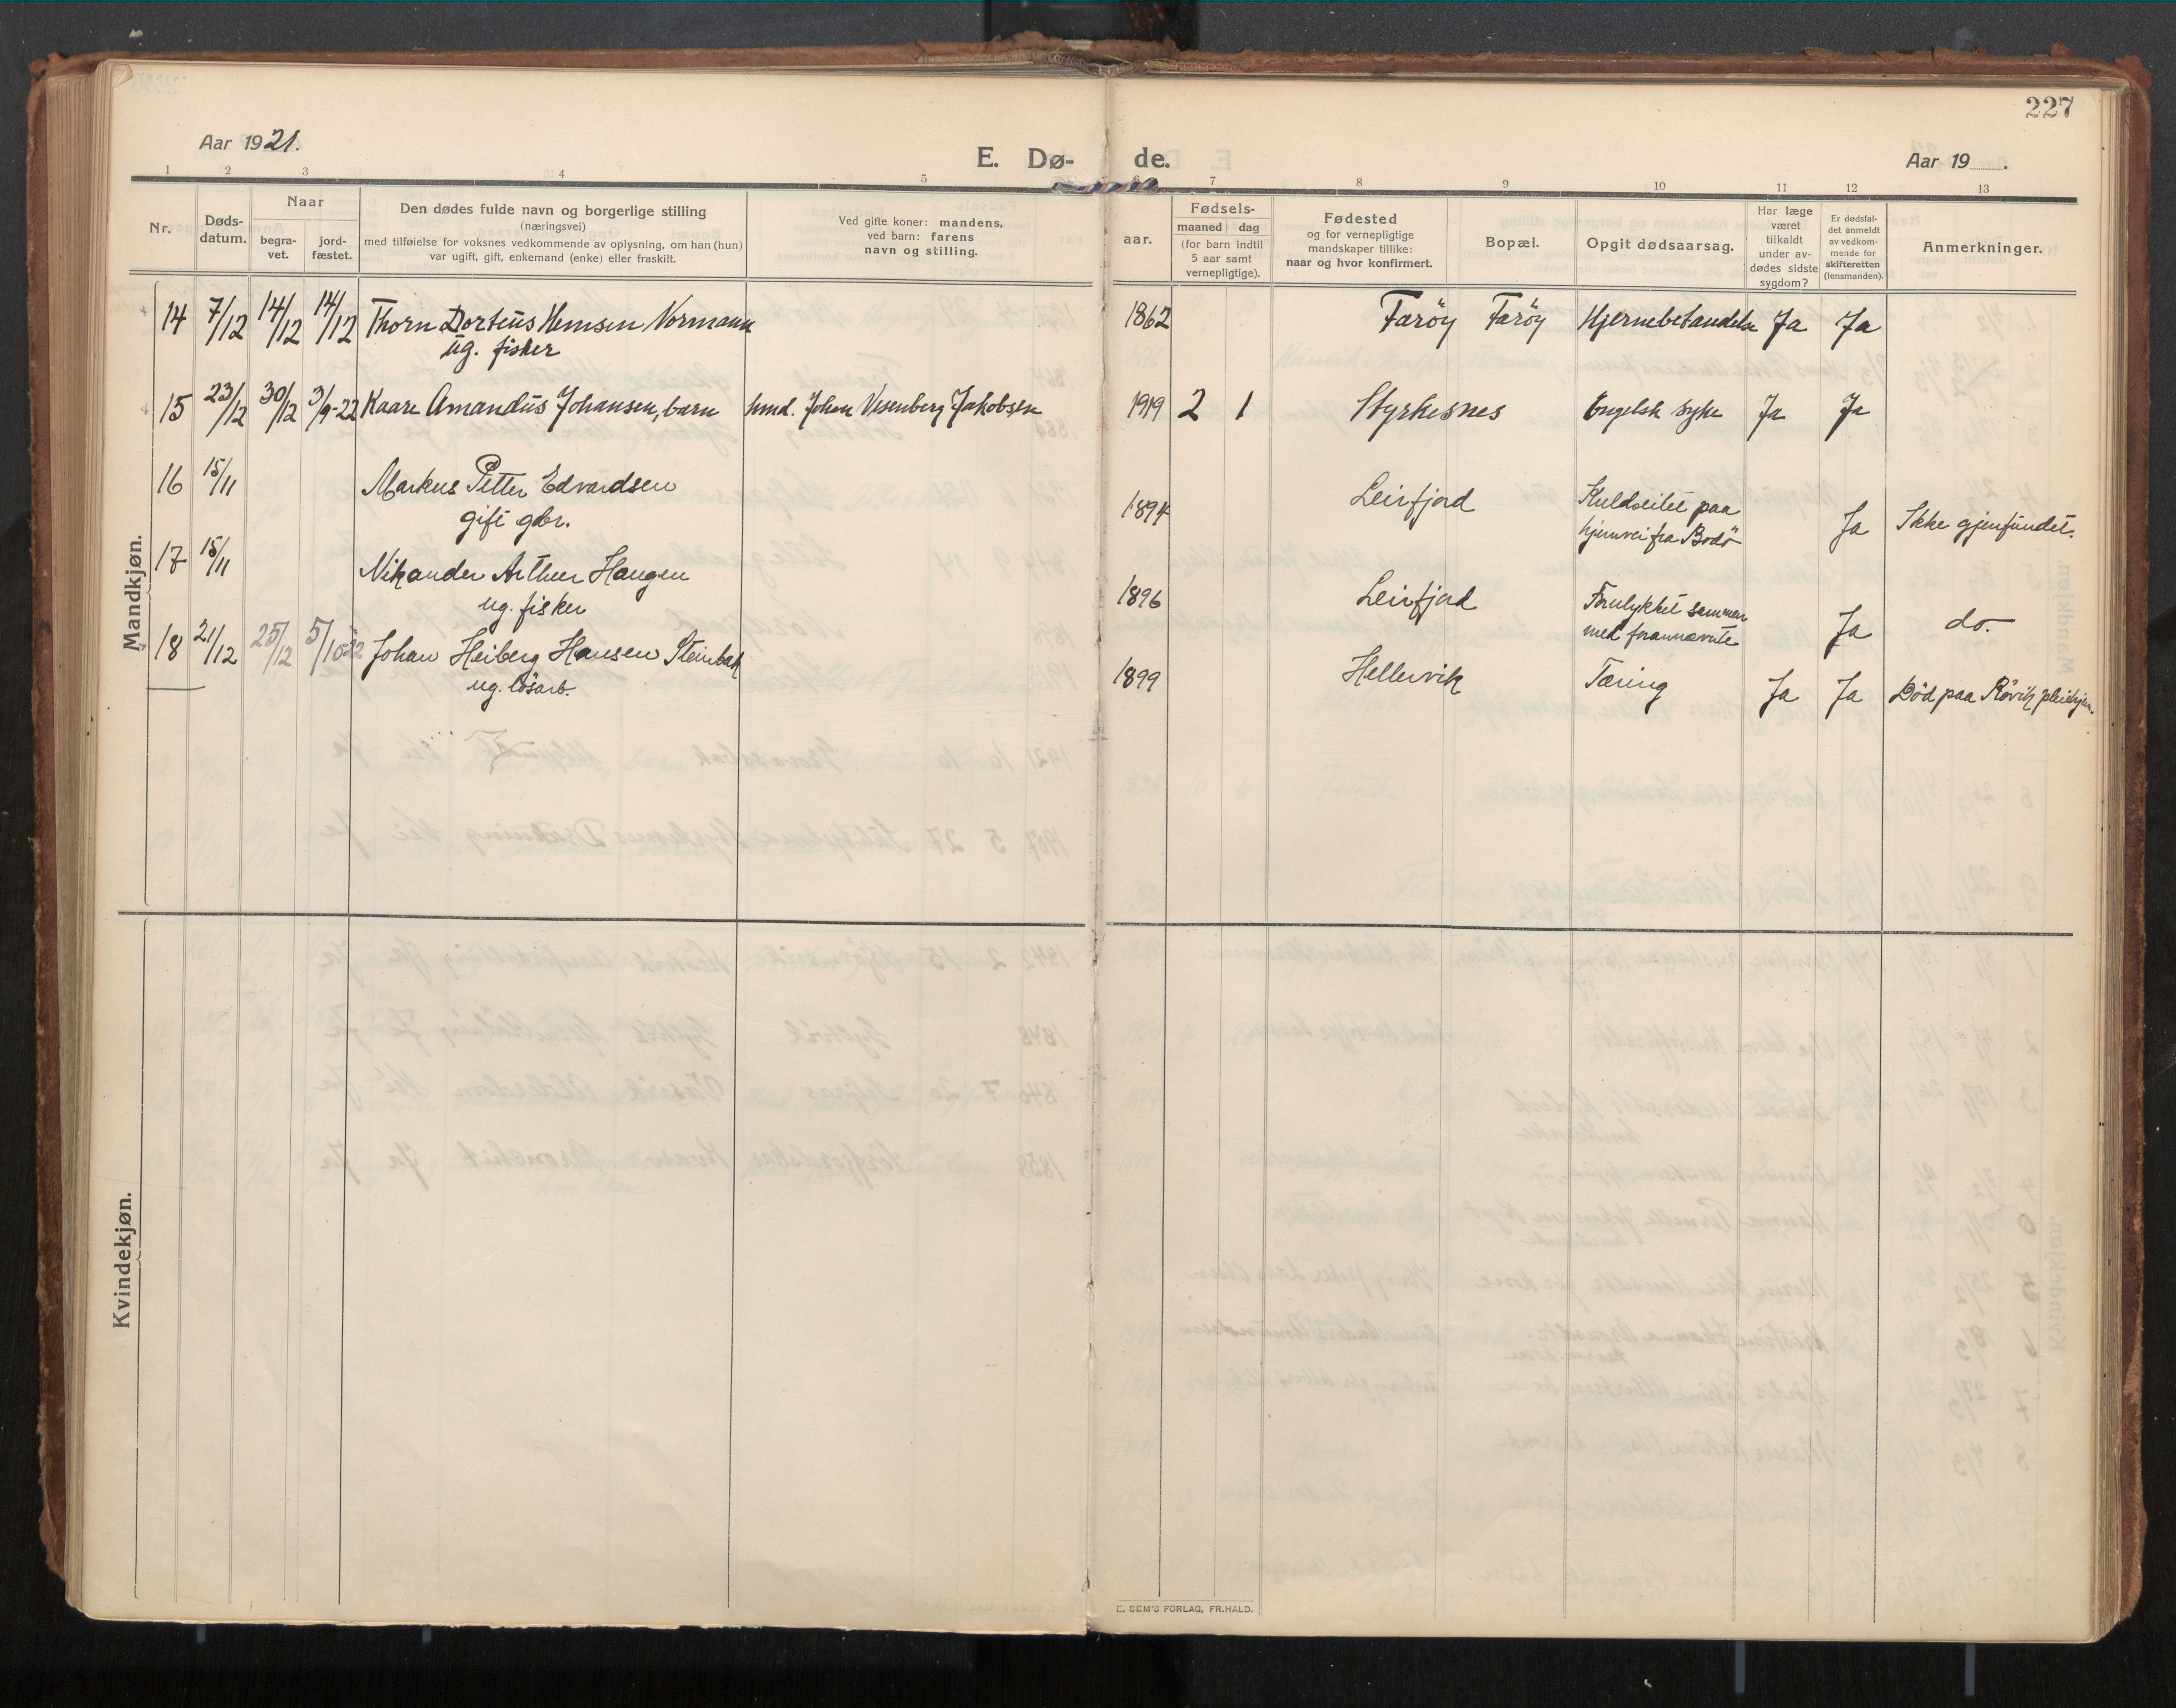 227
Aar 1921.
E. Dø- de.
Aar 19 .
1 2 3 4 5 6 7 8 9 10 11 12 13
Nr.
Døds-
datum.
Naar
begra-
vet.
jord-
fæstet.
Den dødes fulde navn og borgerlige stilling
(næringsvei)
med tilføielse for voksnes vedkommende av oplysning, om han (hun)
var ugift, gift, enkemand (enke) eller fraskilt.
Ved gifte koner: mandens,
ved barn: farens
navn og stilling.
aar.
Fødsels-
maaned dag
(for barn indtil
5 aar samt
vernepligtige).
Fødested
og for vernepligtige
mandskaper tillike:
naar og hvor konfirmert.
Bopæl.
Opgit dødsaarsag.
Har læge
været
tilkaldt
under av-
dødes sidste
sygdom?
Er dødsfal-
det anmeldt
av vedkom-
mende for
skifteretten
(lensmanden).
Anmerkninger.
Mandkjøn.
14 7/12 14/12 14/12 Thorn Dorteus Hemsen Normann 1862 Farøy Farøy Hjernebetændelse Ja Ja
ug. fisker
15 23/12 30/12 3/9-22 Kaare Amandus Johansen, barn smd. Johan Vesenberg Jakobsen 1919 2 1 Styrkesnes Engelsk syke Ja Ja
16 15/11 Markus Petter Edvardsen 1894 Leirfjord Kuldseilet paa
gift gbr. hjemvei fra Bodø Ja Ikke gjenfundet.
17 15/11 Nikander Arthur Haugen 1896 Leirfjord Forulykket sammen
ug. fisker med forannævnte Ja do.
18 21/12 25/12 5/10-22 Johan Heiberg Hansen Steinbak 1899 Hellervik Tæring Ja Ja Død paa Røvik pleiehjem.
ug. løsarb.
Kvindekjøn.
E. SEM'S FORLAG, FR.HALD.